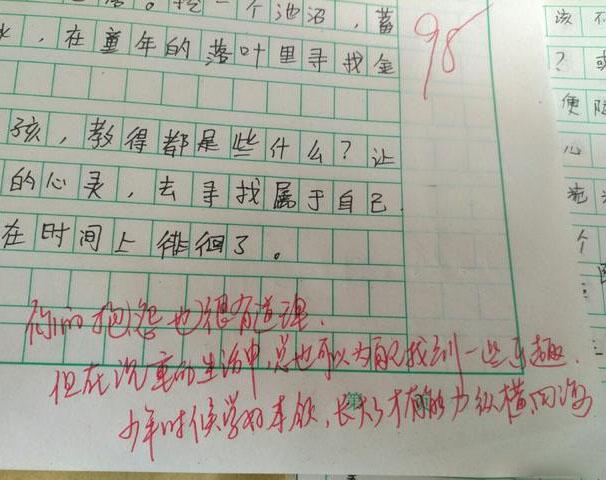 一个池沼，蓄
，在童年的落叶里寻找金
孩，教得都是些什么？让
的心灵，去寻找属于自己
在时间上徘徊了。
98
该不
？或
便陷
心
个
你的抱怨也很有道理.
但在沉重的生活中,总也可以为自己找到一些乐趣.
少年时候学好本领,长大才有能力纵横四海